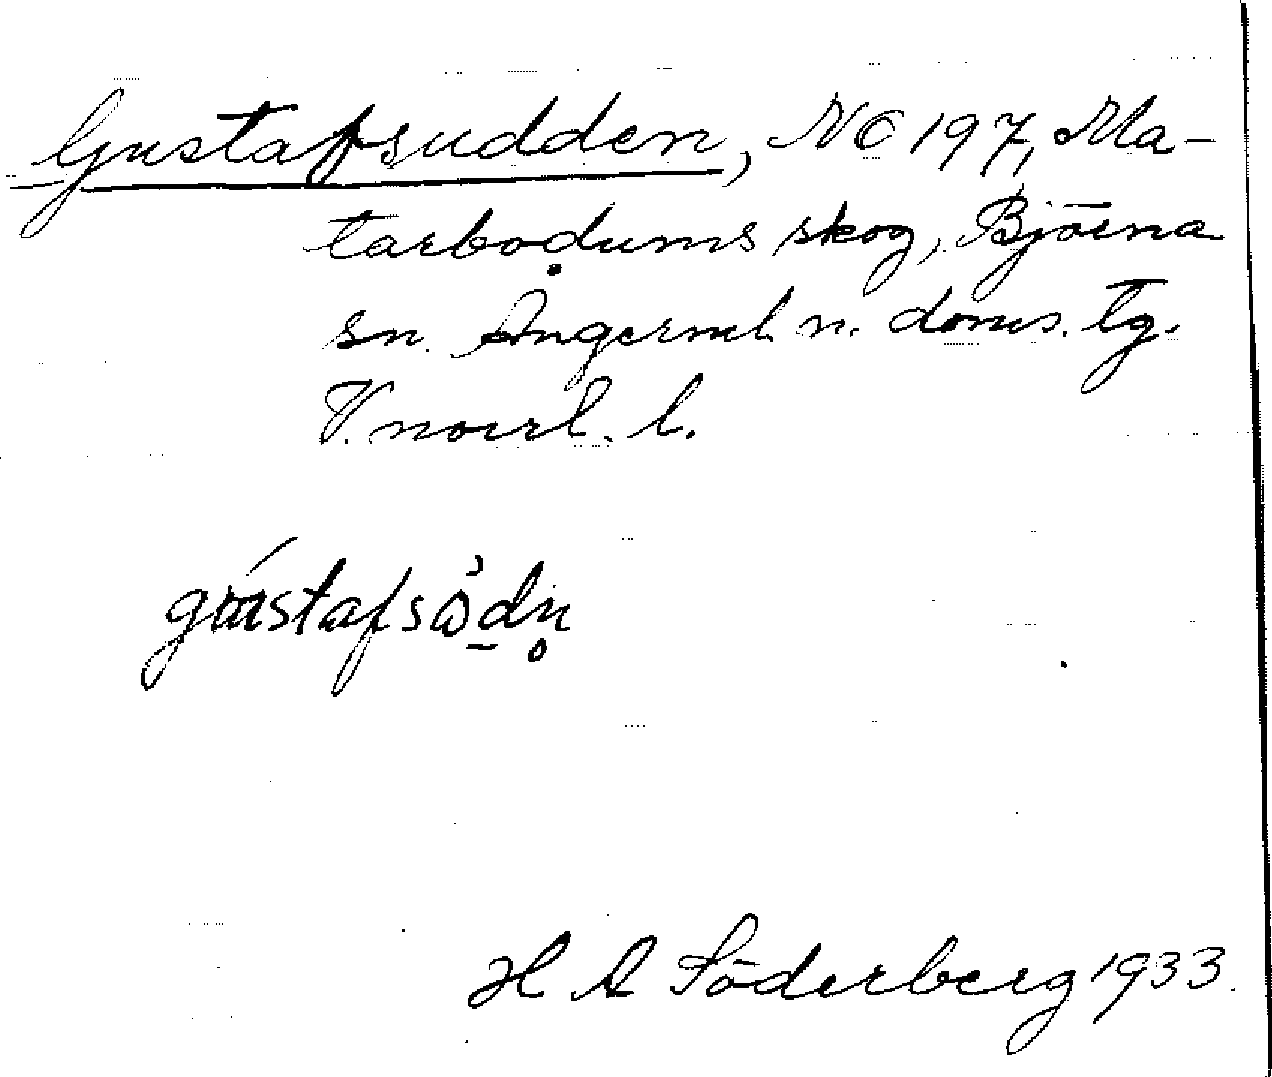 Gustafsudden, NC 197, Ma-
tarbodums skog, Björna
sn. Ångerml. n. doms. tg.
V. norrl. l.
H A Söderberg 1933.